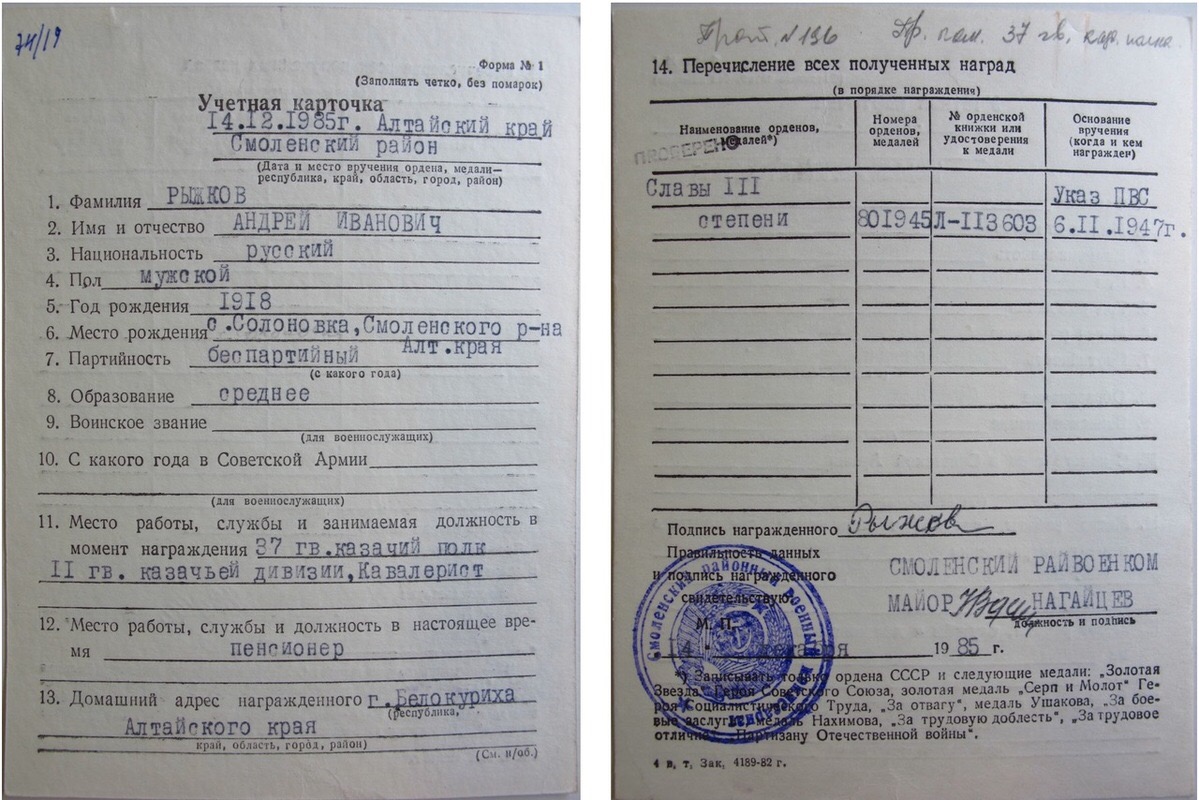 74/19
Форма № 1
(Заполнять четко, без помарок)
Учетная карточка
14.12.1985г. Алтайский край
Смоленский район
(Дата и место вручения ордена, медали—
республика, край, область, город, район)
1. Фамилия РЫЖКОВ
2. Имя и отчество АНДРЕЙ ИВАНОВИЧ
3. Национальность русский
4. Пол мужской
5. Год рождения 1918
6. Место рождения с.Солоновка,Смоленского р-на
Алт.края
7. Партийность беспартийный
(с какого года)
8. Образование среднее
9. Воинское звание
(для военнослужащих)
10. С какого года в Советской Армии
(для военнослужащих)
11. Место работы, службы и занимаемая должность в
момент награждения 37 гв.казачий полк
II гв. казачьей дивизии,Кавалерист
12. Место работы, службы и должность в настоящее вре-
мя пенсионер
13. Домашний адрес награжденного г.Белокуриха
(республика,
Алтайского края
край, область, город, район)
(См. н/об.)
Прот. № 136 Пр. пом. 37 гв. кав. полка
14. Перечисление всех полученных наград
(в порядке награждения)
Наименование орденов, медалей*)
Номера орденов, медалей
№ орденской книжки или удостоверения к медали
Основание вручения (когда и кем награжден)
ПРОВЕРЕНО
Славы III Указ ПВС
степени 801945 Л-113603 6.II.1947г.
Подпись награжденного Рыжков
Правильность данных
и подпись награжденного
свидетельствую:
СМОЛЕНСКИЙ РАЙВОЕНКОМ
МАЙОР НАГАЙЦЕВ
должность и подпись
М. П.
14 декабря 1985 г.
Смоленский районный военный
*) Записывать только ордена СССР и следующие медали: „Золотая
Звезда" Героя Советского Союза, золотая медаль „Серп и Молот" Ге-
роя Социалистического Труда, „За отвагу", медаль Ушакова, „За бое-
вые заслуги", медаль Нахимова, „За трудовую доблесть", „За трудовое
отличие", „Партизану Отечественной войны".
4 в, т, Зак, 4189-82 г.